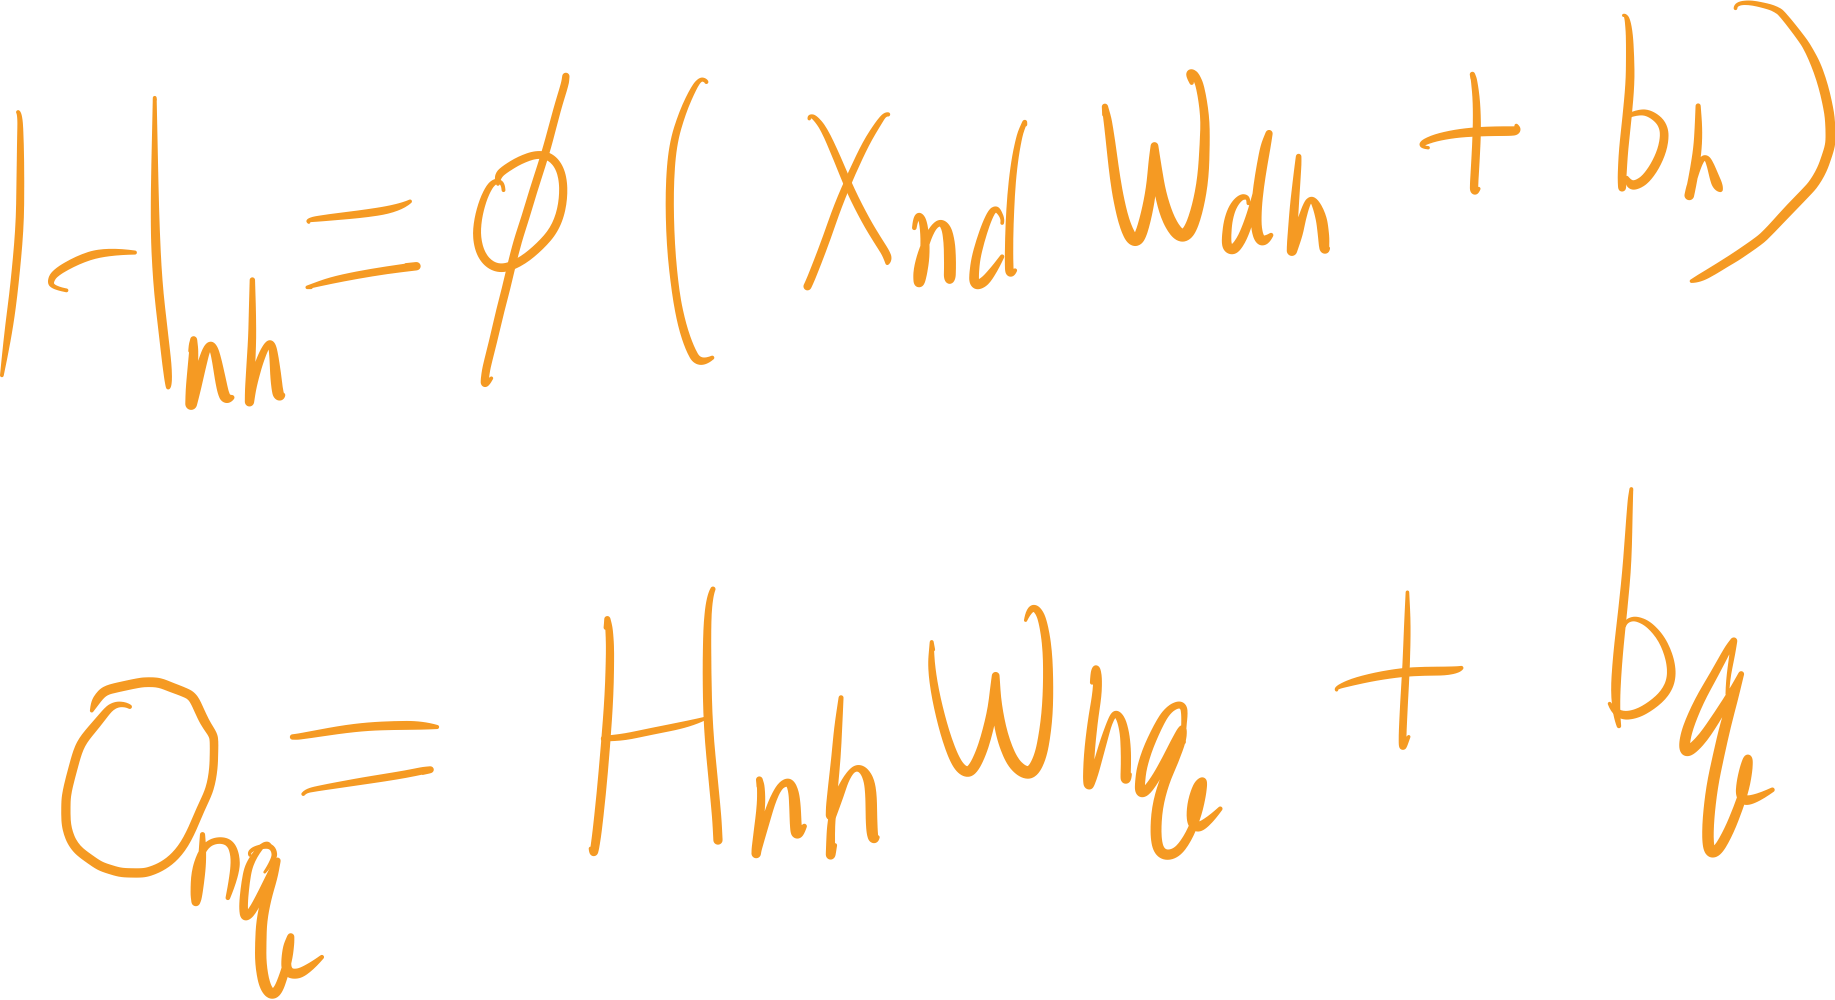 H_{nh} = ϕ ( X_{nd} W_{dh} + b_h )
O_{nq} = H_{nh} W_{hq} + b_q